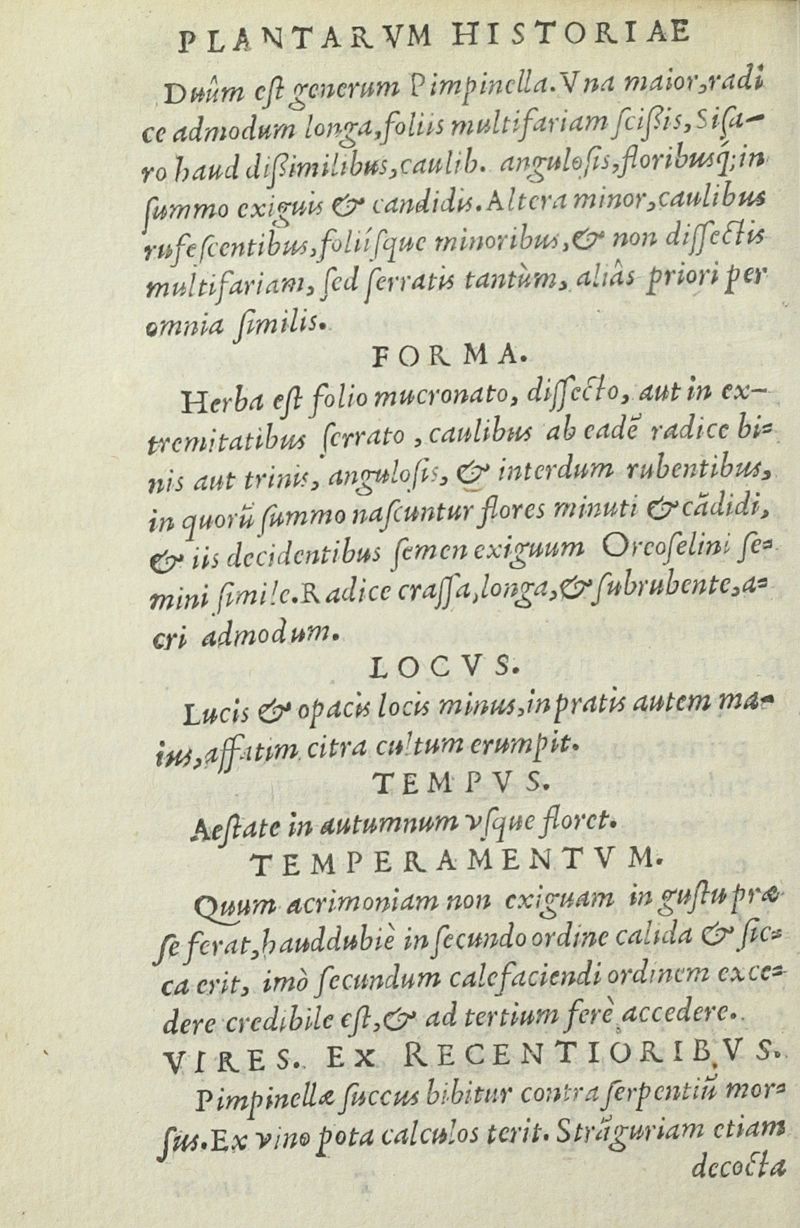 PLANTARVM HISTORIAE
Duûm eſt generum Pimpinella.Vna maior,radi
ce admodum longa,foliis multifariam ſciſsis,Siſa-
ro haud diſsimilibus,caulib. anguloſis,floribusq́;in
ſummo exiguis & candidis.Altera minor,caulibus
rufeſcentibus,foliíſque minoribus,& non diſſectis
multifariam, ſed ſerratis tantùm, aliâs priori per
omnia ſimilis.
FORMA.
Herba eſt folio mucronato, diſſecto, aut in ex-
tremitatibus ſerrato , caulibus ab eadẽ radice bi-
nis aut trinis, anguloſis, & interdum rubentibus,
in quorũ ſummo naſcuntur flores minuti & cãdidi,
& iis decidentibus ſemen exiguum Oreoſelini ſe-
mini ſimile.Radice craſſa,longa,& ſubrubente,a-
cri admodum.
LOCVS.
Lucis & opacis locis minus,in pratis autem ma-
ius,affatim citra cultum erumpit.
TEMPVS.
Aeſtate in autumnum vſque floret.
TEMPERAMENTVM.
Quum acrimoniam non exiguam in guſtu præ
ſe ferat,haud dubiè in ſecundo ordine calida & ſic-
ca erit, imò ſecundum calefaciendi ordinem exce-
dere credibile eſt,& ad tertium ferè accedere.
VIRES. EX RECENTIORIBVS.
Pimpinellæ ſuccus bibitur contra ſerpentiũ mor-
ſus.Ex vino pota calculos terit. Strãguriam etiam
decocta